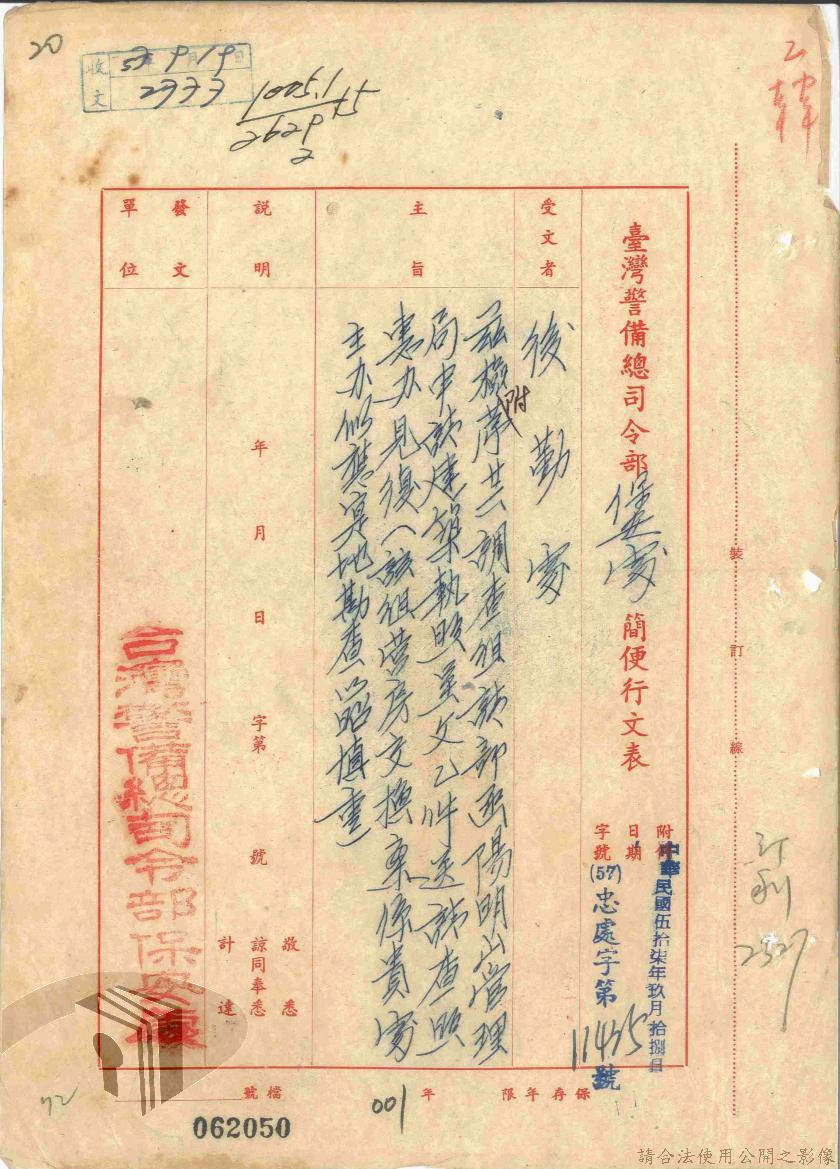 20
收文 57年9月19日
2933
乙
韓
臺灣警備總司令部保安處簡便行文表
附件
日期 中華民國伍拾柒年玖月拾捌日
字號 (57)忠處字第11435號
受文者
後勤處
主旨
茲檢附共調查組請部函陽明山管理
局申請建築執照呈文乙件送請查照
惠办見復(該組營房交換案係貴處
主办似應實地勘查以昭慎重)
說明
年 月 日 字第 號
敬悉
諒同奉悉
計達
發文單位
台灣警備總司令部保安處
裝訂線
2527
保存年限
001
年
檔號
72
062050
請合法使用公開之影像